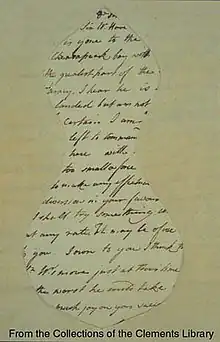 Sir W. Howe
is gone to the
Chesapeak bay with
the greatest part of the
army. I hear he is
landed but am not
certain. I am
left to command
here with
too small a force
to make any effectual
diversion in your favour
I shall try something
at any rate. It may be of use
to you. I own to you I think
Sr W's move just at this time
the worst he could take
much joy on your
From the Collections of the Clements Library